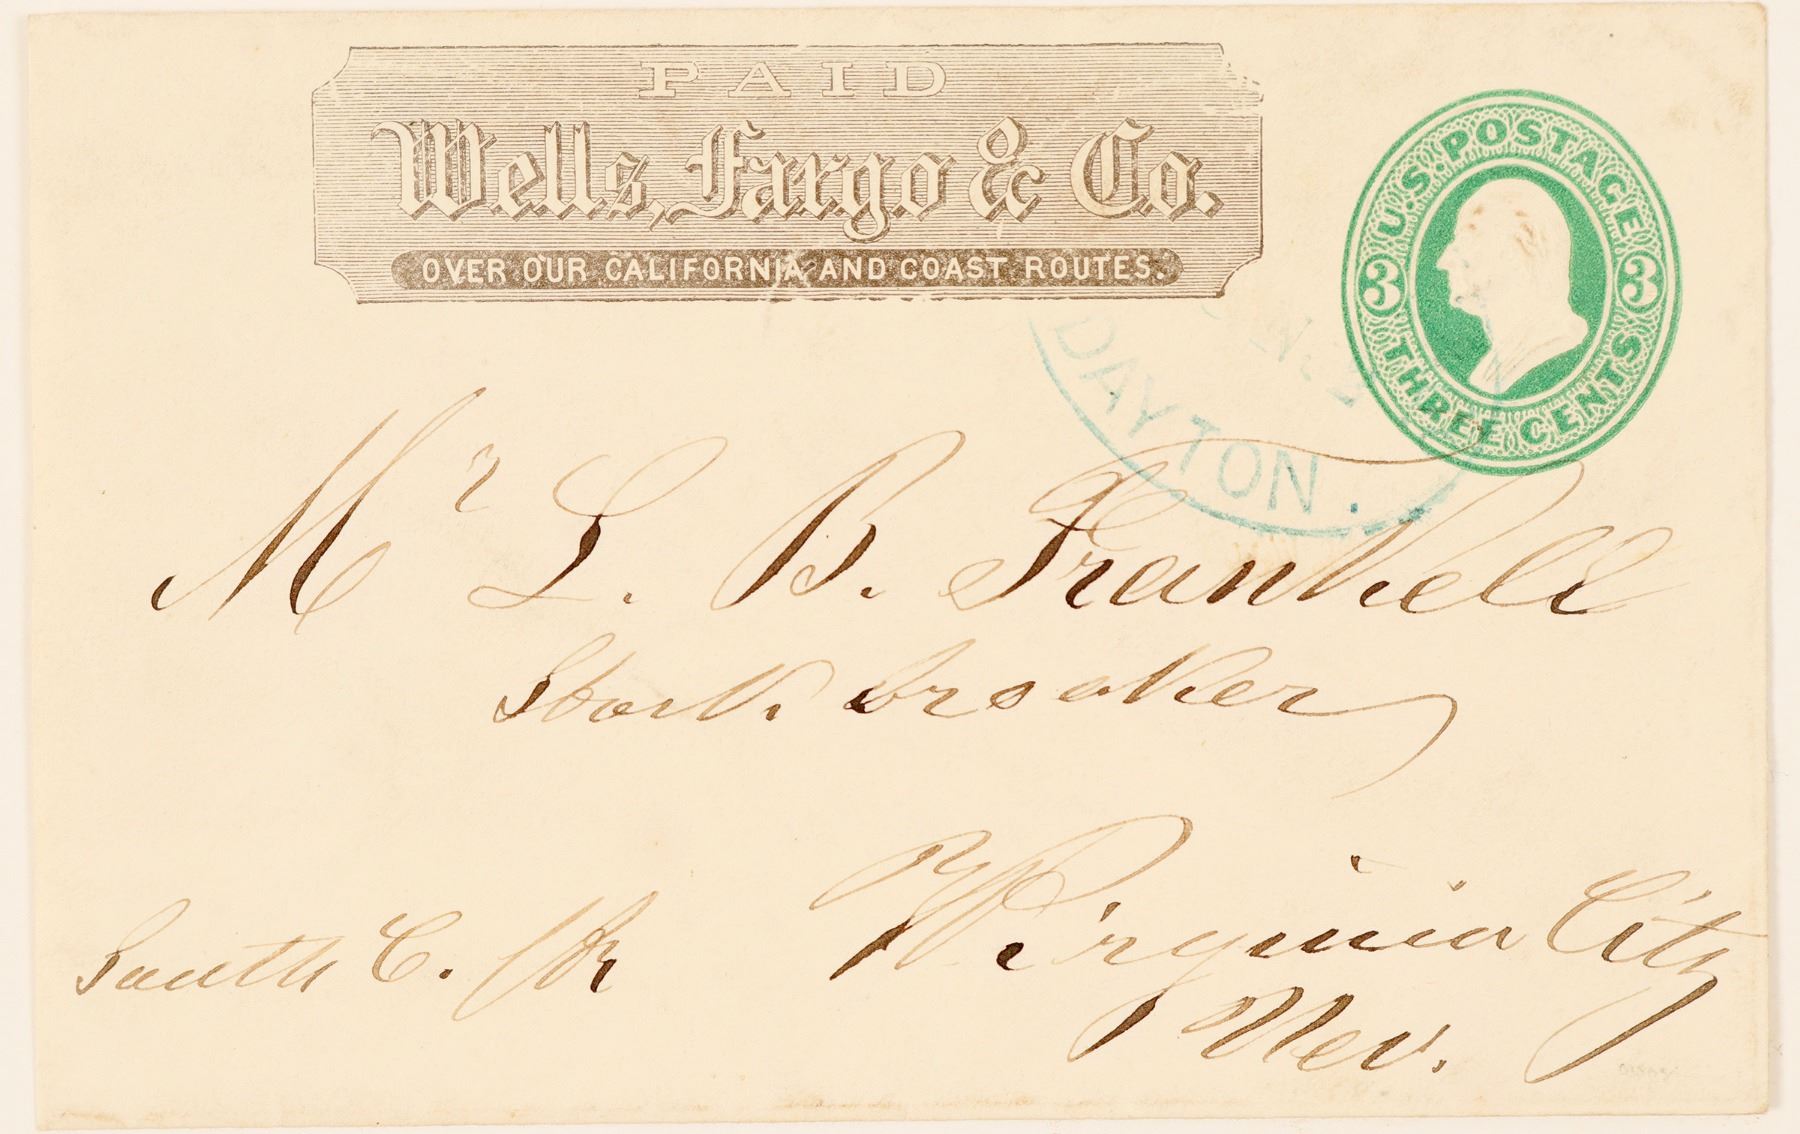 PAID
Wells, Fargo & Co.
OVER OUR CALIFORNIA AND COAST ROUTES.
U.S. POSTAGE
3 3
THREE CENTS
DAYTON.
Mr L. B. Frankell
Stock. broaker
Virginia City
Nev.
South C.